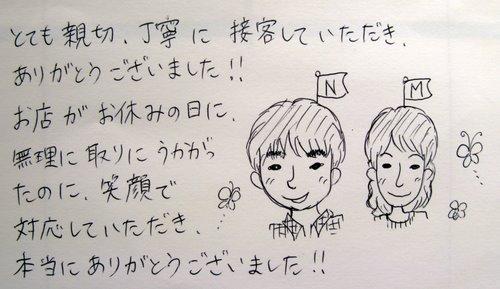 とても親切、丁寧に接客していただき、
ありがとうございました!!
お店がお休みの日に、
無理に取りにうかがっ
たのに、笑顔で
対応していただき、
本当にありがとうございました!!
N
M